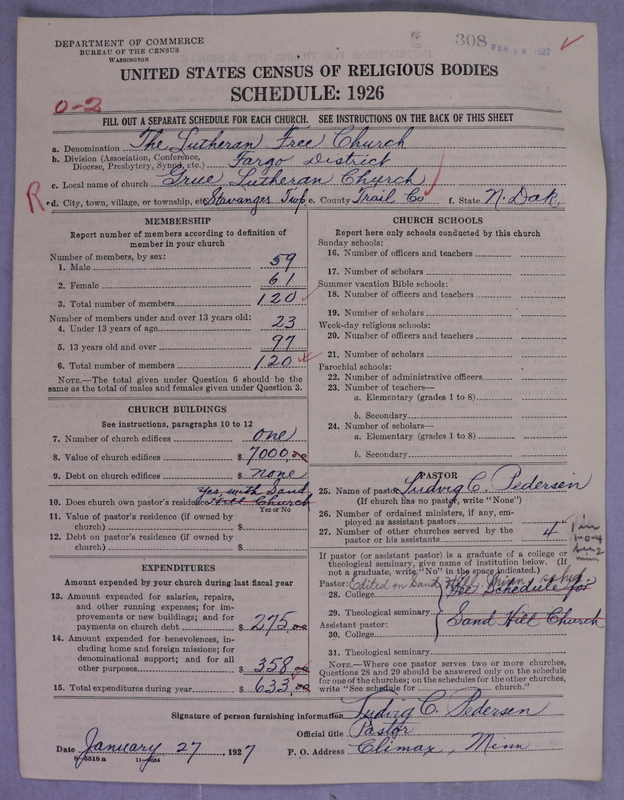 DEPARTMENT OF COMMERCE
BUREAU OF THE CENSUS
WASHINGTON
308 FEB 14 1927
UNITED STATES CENSUS OF RELIGIOUS BODIES
SCHEDULE: 1926
0-2
FILL OUT A SEPARATE SCHEDULE FOR EACH CHURCH. SEE INSTRUCTIONS ON THE BACK OF THIS SHEET
a. Denomination The Lutheran Free Church
b. Division (Association, Conference, Diocese, Presbytery, Synod, etc.) Fargo District
c. Local name of church Grue Lutheran Church
R d. City, town, village, or township, etc. Stavanger Twp e. County Trail Co f. State N. Dak.
MEMBERSHIP
Report number of members according to definition of
member in your church
Number of members, by sex:
1. Male 59
2. Female 61
3. Total number of members 120
Number of members under and over 13 years old:
4. Under 13 years of age 23
5. 13 years old and over 97
6. Total number of members 120
NOTE.—The total given under Question 6 should be the
same as the total of males and females given under Question 3.
CHURCH BUILDINGS
See instructions, paragraphs 10 to 12
7. Number of church edifices one
8. Value of church edifices $ 7000.00
9. Debt on church edifices $ none
Yes with Sand
10. Does church own pastor's residence Hill Church
Yes or No
11. Value of pastor's residence (if owned by
church) $
12. Debt on pastor's residence (if owned by
church) $
EXPENDITURES
Amount expended by your church during last fiscal year
13. Amount expended for salaries, repairs,
and other running expenses; for im-
provements or new buildings; and for
payments on church debt $ 275.00
14. Amount expended for benevolences, in-
cluding home and foreign missions; for
denominational support; and for all
other purposes $ 358.00
15. Total expenditures during year $ 633.00
CHURCH SCHOOLS
Report here only schools conducted by this church
Sunday schools:
16. Number of officers and teachers
17. Number of scholars
Summer vacation Bible schools:
18. Number of officers and teachers
19. Number of scholars
Week-day religious schools:
20. Number of officers and teachers
21. Number of scholars
Parochial schools:
22. Number of administrative officers
23. Number of teachers—
a. Elementary (grades 1 to 8)
b. Secondary
24. Number of scholars—
a. Elementary (grades 1 to 8)
b. Secondary
PASTOR
25. Name of pastor Ludvig C. Pedersen
(If church has no pastor, write "None")
26. Number of ordained ministers, if any, em-
ployed as assistant pastors
27. Number of other churches served by the
pastor or his assistants 4
If pastor (or assistant pastor) is a graduate of a college or
theological seminary, give name of institution below. (If
not a graduate, write "No" in the space indicated.)
Pastor: Edited on Sand Hill, Minn. sched
28. College See Schedule for
29. Theological seminary Sand Hill Church
Assistant pastor:
30. College
31. Theological seminary
NOTE.—Where one pastor serves two or more churches,
Questions 28 and 29 should be answered only on the schedule
for one of the churches; on the schedules for the other churches,
write "See schedule for church."
Signature of person furnishing information Ludvig C. Pedersen
Official title Pastor
Date January 27, 1927 P. O. Address Climax, Minn
8-5518a 11-9054